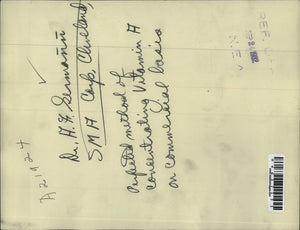 Dr. H. F. Sermann
SMA Corp, Cleveland,
method of
concentrating Vitamin A
on commercial basis
A 21924